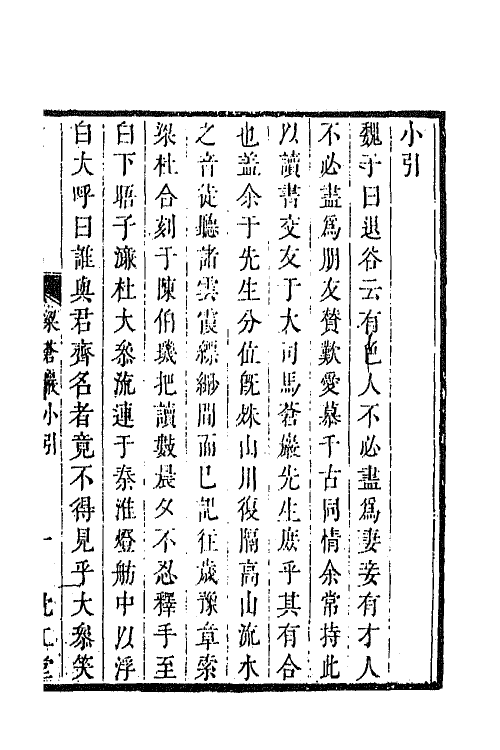 小引
魏子曰退谷云有色人不必盡爲妻妾有才人
不必盡爲朋友贊歎愛慕千古同情余常持此
以讀書交友于大司馬蒼巖先生庶乎其有合
也盖余于先生分位旣殊山川復隔高山流水
之音徒聽諸雲霞縹緲間而已記往歲豫章索
梁杜合刻于陳伯璣把讀數晨夕不忍釋手至
白下晤子濂杜大叅流連于秦淮燈舫中以浮
白大呼曰誰與君齊名者竟不得見乎大叅笑
梁蒼巖小引
一